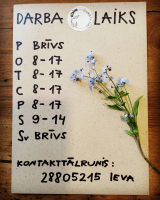 DARBA LAIKS
P BRĪVS
O 8-17
T 8-17
C 8-17
P 8-17
S 9-14
Sv BRĪVS
KONTAKTTĀLRUNIS:
28805215 IEVA